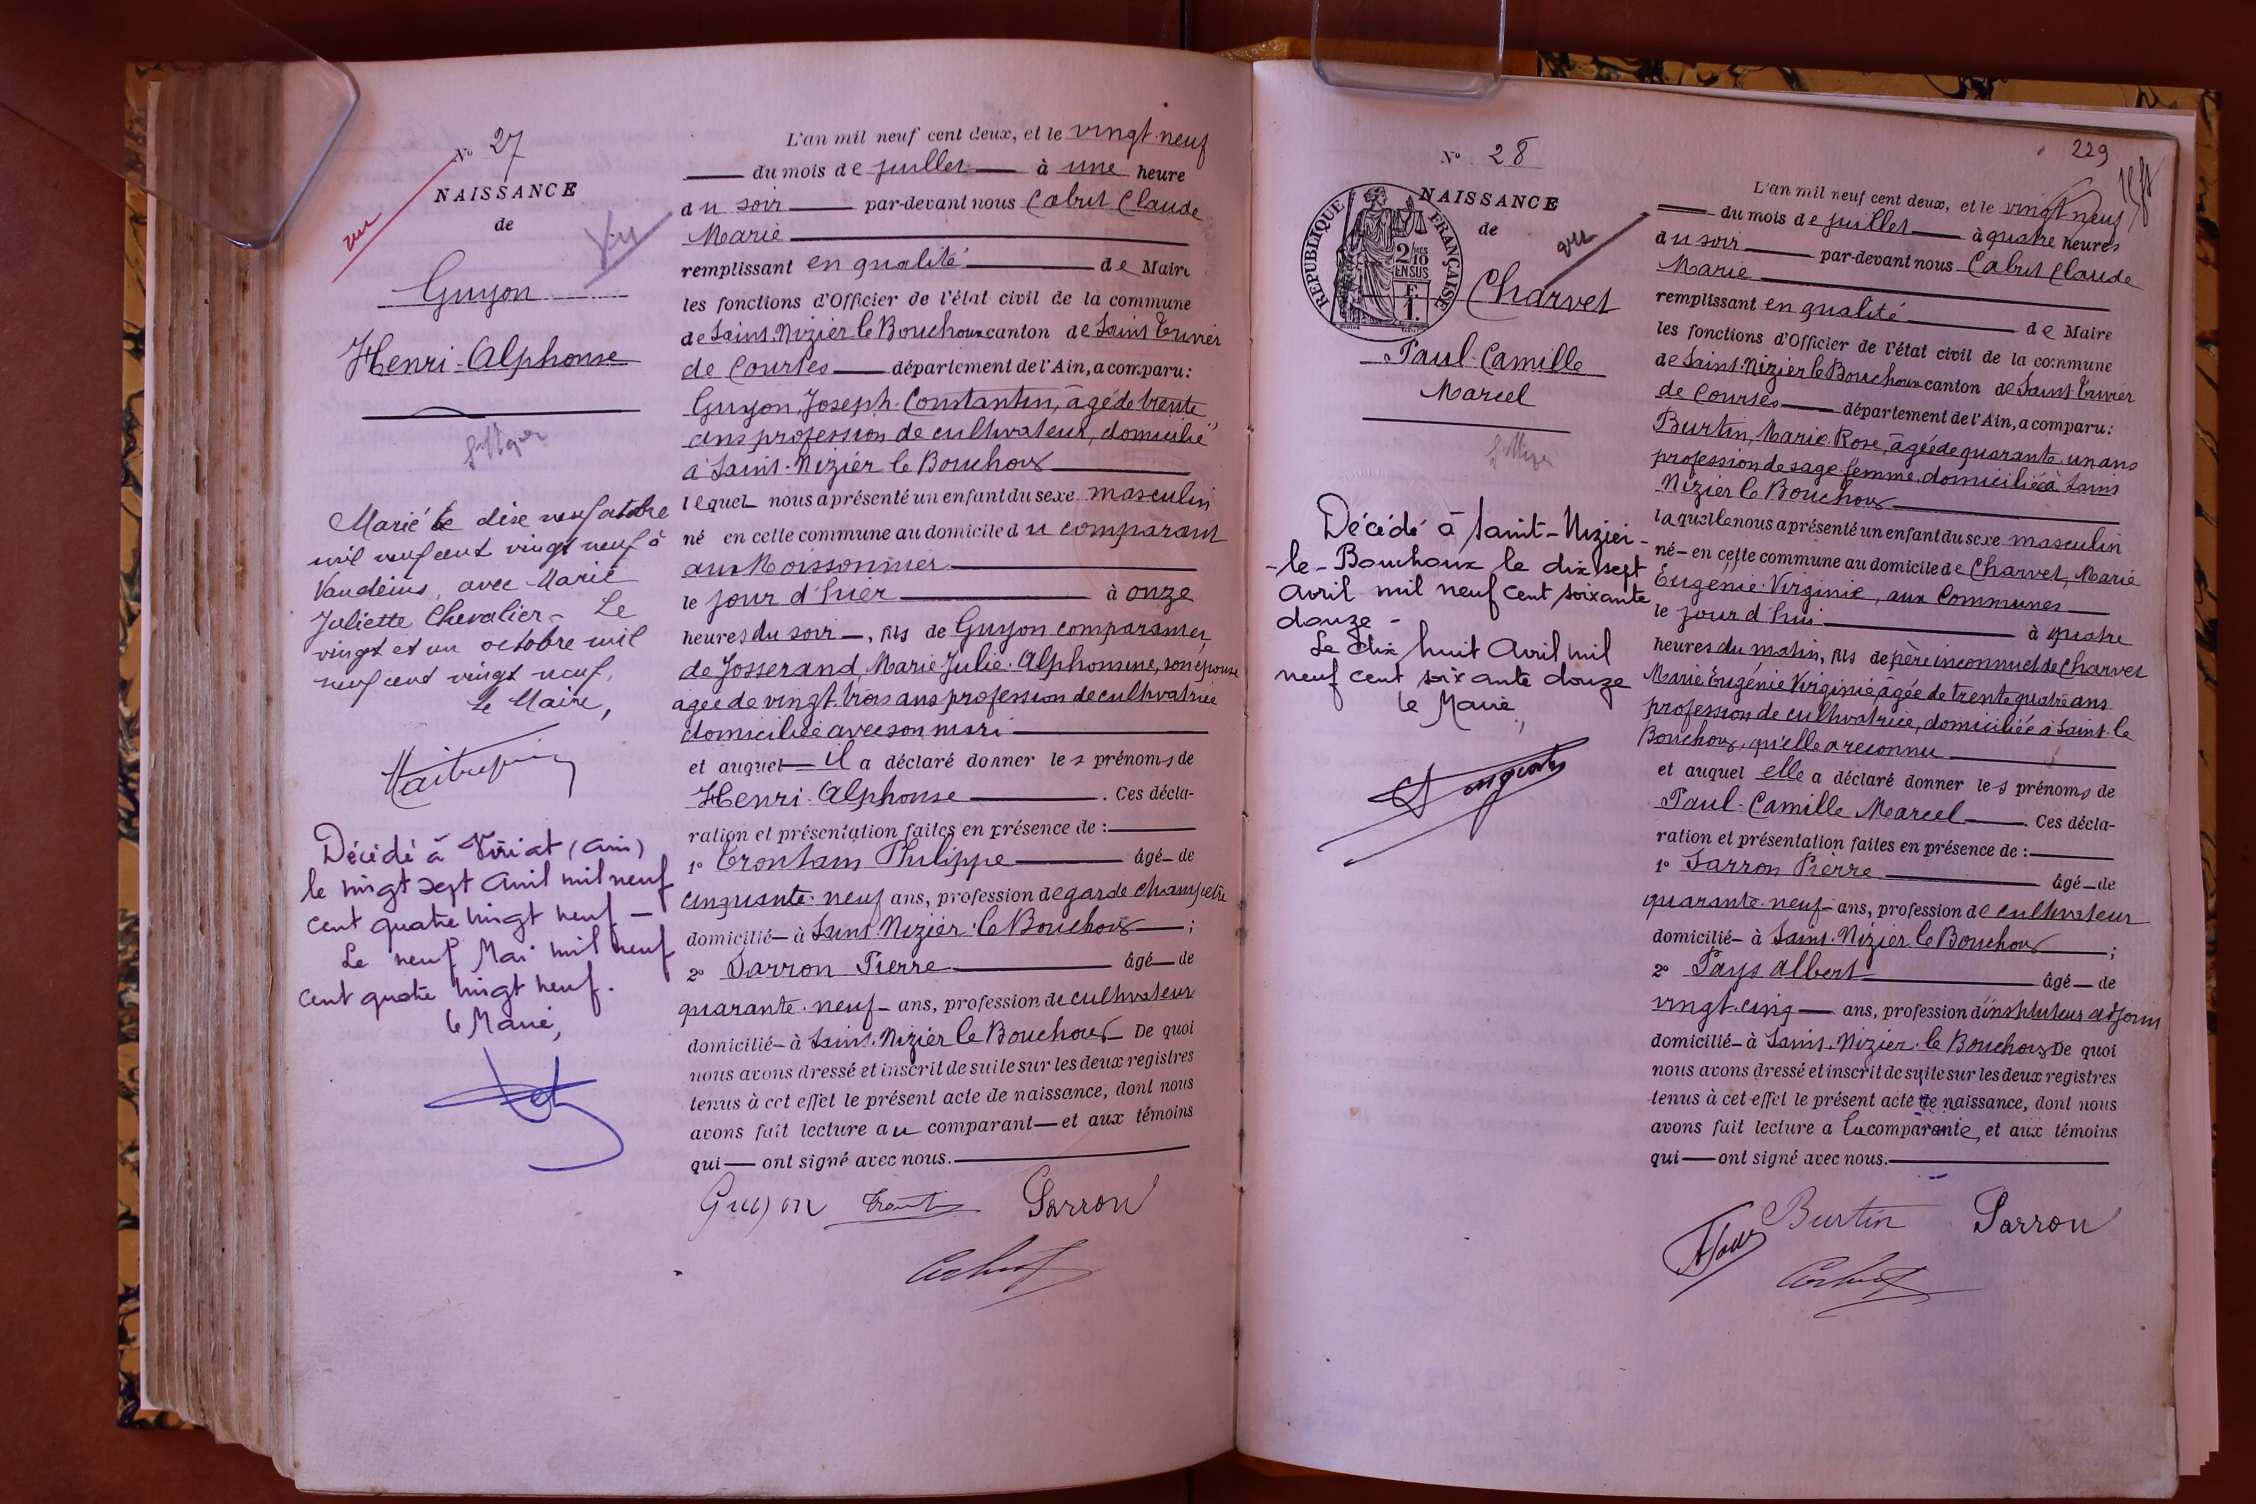 N° 27
NAISSANCE
de
Guyon
Henri-Alphonse
vu
Vu
Marié le dix neuf octobre
mil neuf cent vingt neuf à
Vandeins, avec Marie
Juliette Chevalier - Le
vingt et un octobre mil
neuf cent vingt neuf,
Le Maire,
Décédé à Viriat (Ain)
le vingt sept Avril mil neuf
cent quatre vingt neuf -
Le neuf Mai mil neuf
cent quatre vingt neuf.
Le Maire,
L'an mil neuf cent deux, et le vingt-neuf
du mois de juillet à une heure
du soir par-devant nous Cabut Claude
Marie
remplissant en qualité de Maire
les fonctions d'Officier de l'état civil de la commune
de Saint-Nizier le Bouchoux canton de Saint Trivier
de Courtes département de l'Ain, a comparu:
Guyon, Joseph-Constantin, âgé de trente
ans profession de cultivateur, domicilié
à Saint-Nizier le Bouchoux
lequel nous a présenté un enfant du sexe masculin
né en cette commune au domicile du comparant
aux Moissonnier
le jour d'hier à onze
heures du soir, fils de Guyon comparant et
de Josserand, Marie-Julie-Alphonsine, son épouse
âgée de vingt-trois ans profession de cultivatrice
domiciliée avec son mari
et auquel il a déclaré donner les prénoms de
Henri-Alphonse. Ces décla-
ration et présentation faites en présence de:
1° Philippe âgé de
cinquante-neuf ans, profession de garde champêtre
domicilié à Saint Nizier-le Bouchoux;
2° Sarron Pierre âgé de
quarante-neuf ans, profession de cultivateur
domicilié à Saint-Nizier le Bouchoux De quoi
nous avons dressé et inscrit de suite sur les deux registres
tenus à cet effet le présent acte de naissance, dont nous
avons fait lecture au comparant et aux témoins
qui ont signé avec nous.
Guyon Sarron
Cabut
229
N° 28
NAISSANCE
de
RÉPUBLIQUE FRANÇAISE
2/10 EN SUS
F. 1.
vu
Charvet
Paul-Camille
Marcel
Décédé à Saint-Nizier-
-le-Bouchoux le dix sept
Avril mil neuf cent soixante
douze -
Le dix huit Avril mil
neuf cent soixante douze
Le Maire,
L'an mil neuf cent deux, et le vingt-neuf
du mois de juillet à quatre heures
du soir par-devant nous Cabut Claude
Marie
remplissant en qualité de Maire
les fonctions d'Officier de l'état civil de la commune
de Saint-Nizier le Bouchoux canton de Saint Trivier
de Courtes département de l'Ain, a comparu:
Burtin, Marie-Rose, âgée de quarante-un ans
profession de sage-femme, domiciliée à Saint
Nizier le Bouchoux
laquelle nous a présenté un enfant du sexe masculin
né en cette commune au domicile de Charvet, Marie
Eugénie-Virginie, aux Communes
le jour d'hui à quatre
heures du matin, fils de père inconnu et de Charvet
Marie Eugénie Virginie, âgée de trente quatre ans
profession de cultivatrice, domiciliée à Saint-le
Bouchoux, qu'elle a reconnu
et auquel elle a déclaré donner les prénoms de
Paul-Camille Marcel. Ces décla-
ration et présentation faites en présence de:
1° Sarron Pierre âgé de
quarante-neuf ans, profession de cultivateur
domicilié à Saint-Nizier le Bouchoux;
2° Pays Albert âgé de
vingt-cinq ans, profession d'instituteur adjoint
domicilié à Saint-Nizier-le Bouchoux De quoi
nous avons dressé et inscrit de suite sur les deux registres
tenus à cet effet le présent acte de naissance, dont nous
avons fait lecture a la comparante, et aux témoins
qui ont signé avec nous.
Burtin Sarron
Cabut